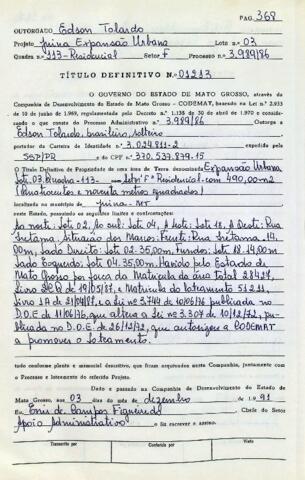 PAG. 368
OUTORGADO Edson Tolardo
Projeto Juina Expansão Urbana Lote n.o 03
Quadra n.o 113-Residencial Setor F Processo n.o 3.989/86
TÍTULO DEFINITIVO N.o 01213
O GOVERNO DO ESTADO DE MATO GROSSO, através da
Companhia de Desenvolvimento do Estado de Mato Grosso - CODEMAT, baseado na Lei n.o 2.933
de 10 de junho de 1969, regulamentada pelo Decreto n.o 1.138 de 30 de abril de 1970 e considerando
o que consta do Processo Administrativo n.o 3.989/86 Outorga a
Edson Tolardo, brasileiro, solteiro
portador da Carteira de Identidade n.o 3.024.811-2 expedida pela
SSP/PR e do CPF n.o 370.537.839.15
O Título Definitivo de Propriedade de uma área de Terra denominada Expansão Urbana
Lote 03, Quadra-113- Setor "F" Residencial com 490,00m2
(Quatrocentos e noventa metros quadrados)
localizada no município de Juina - MT
neste Estado, possuindo os seguintes limites e confrontações:
Ao norte: Lote 02, Ao sul: Lote 04, A Leste: Lote: 18, A Oeste: Rua
Situação dos Marcos: Frente: Rua 14,
00m, Lado Direito: Lote 02-35,00m, Fundos: Lote 18-14,00m
Lado Esquerdo: Lote 04-35,00m. Havido pelo Estado de
Mato Grosso por força da Matrícula da área total 28427,
livro 2 de 19/05/87, e Matrícula do loteamento 51211,
livro de 21/04/88, e a Lei n.o 3.744 de 10/06/76 publicada no
D.O.E de 11/06/76, que altera a Lei n.o 3.307 de 10/12/72, pu-
blicada no D.O.E. de 26/12/72, que autorizou a CODEMAT
a promover o loteamento.
tudo conforme planta e memorial descritivo, que ficam arquivados nesta Companhia, juntamente com
o Processo e loteamento do referido Projeto.
Dado e passado na Companhia de Desenvolvimento do Estado de
Mato Grosso, aos 03 dias do mês de dezembro de 1991
Eu de Campos Figueiredo Chefe do Setor
Apoio Administrativo o fiz escrever e assino.
Transcrito por Conferido por Visto